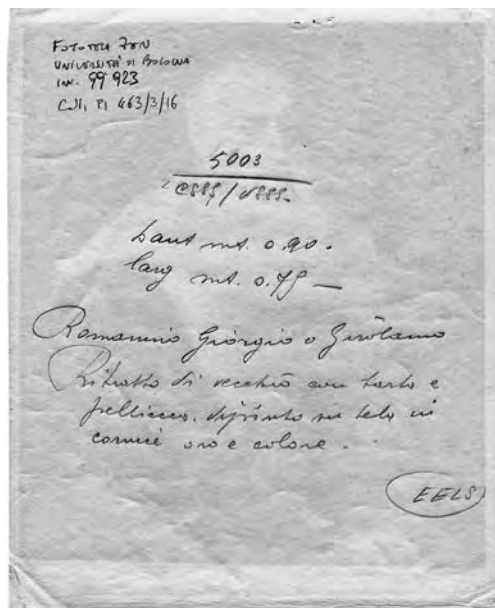 FOTOTECA ZERI
UNIVERSITÀ DI BOLOGNA
INV. 99 923
Coll. PI 463/3/16
5003
haut mt. 0.90.
larg mt. 0.75 —
Romanino Giorgio o Girolamo
Ritratto di vecchio con tocco e
pelliccia, dipinto su tela in
cornice oro e colore.
EELS